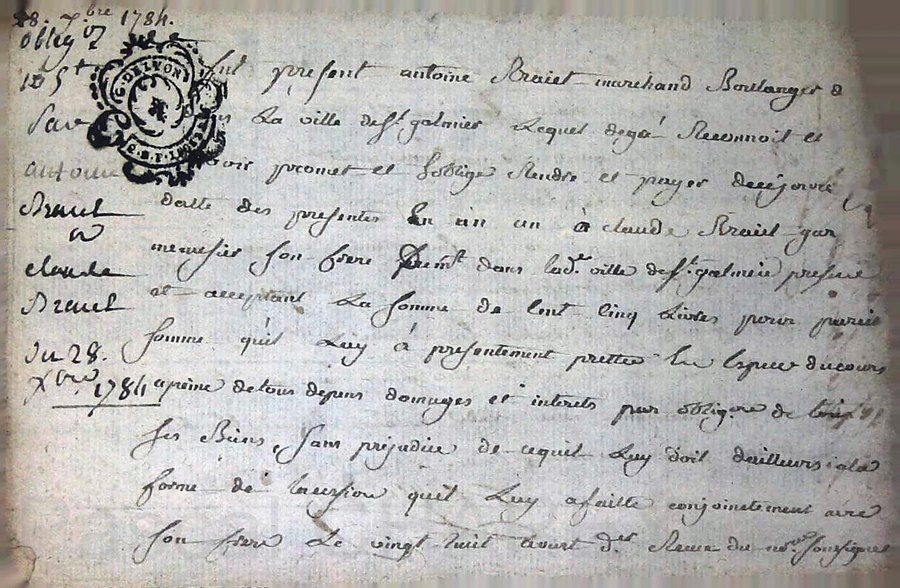 28. 7bre 1784.
oblig on
105 tt
Par
antoine
Brait
a
claude
Brait
du 28.
Xbre 1784
G. DE LYON
fut present antoine Brait marchand Boulanger
La ville de St galmier Lequel degré Reconnoit et
promet et soblige Rendre et payer decejourd
datte des presentes En un an à claude Brait gar
menusier son frere dans lade ville de St galmier present
et acceptant La somme de Cent Cinq Livres pour pareil
somme quil Luy à presentement prettée En Espece ducours
apeine detous depens domages et interets par obligon de tous
ses Biens, sans prejudice de cequil Luy doit dailleurs ala
forme de Cession quil Luy afaitte conjointement avec
son frere Le vingt huit avant dr Receu du nore soussigné